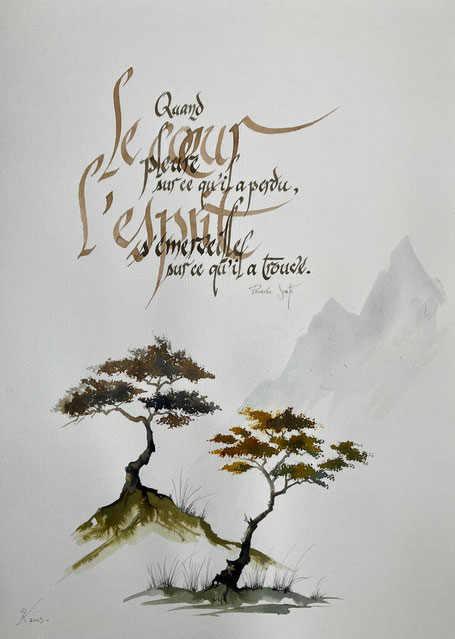 Quand
Le cœur
pleure
sur ce qu'il a perdu,
L'esprit
s'émerveille
sur ce qu'il a trouvé.
Proverbe Soufi